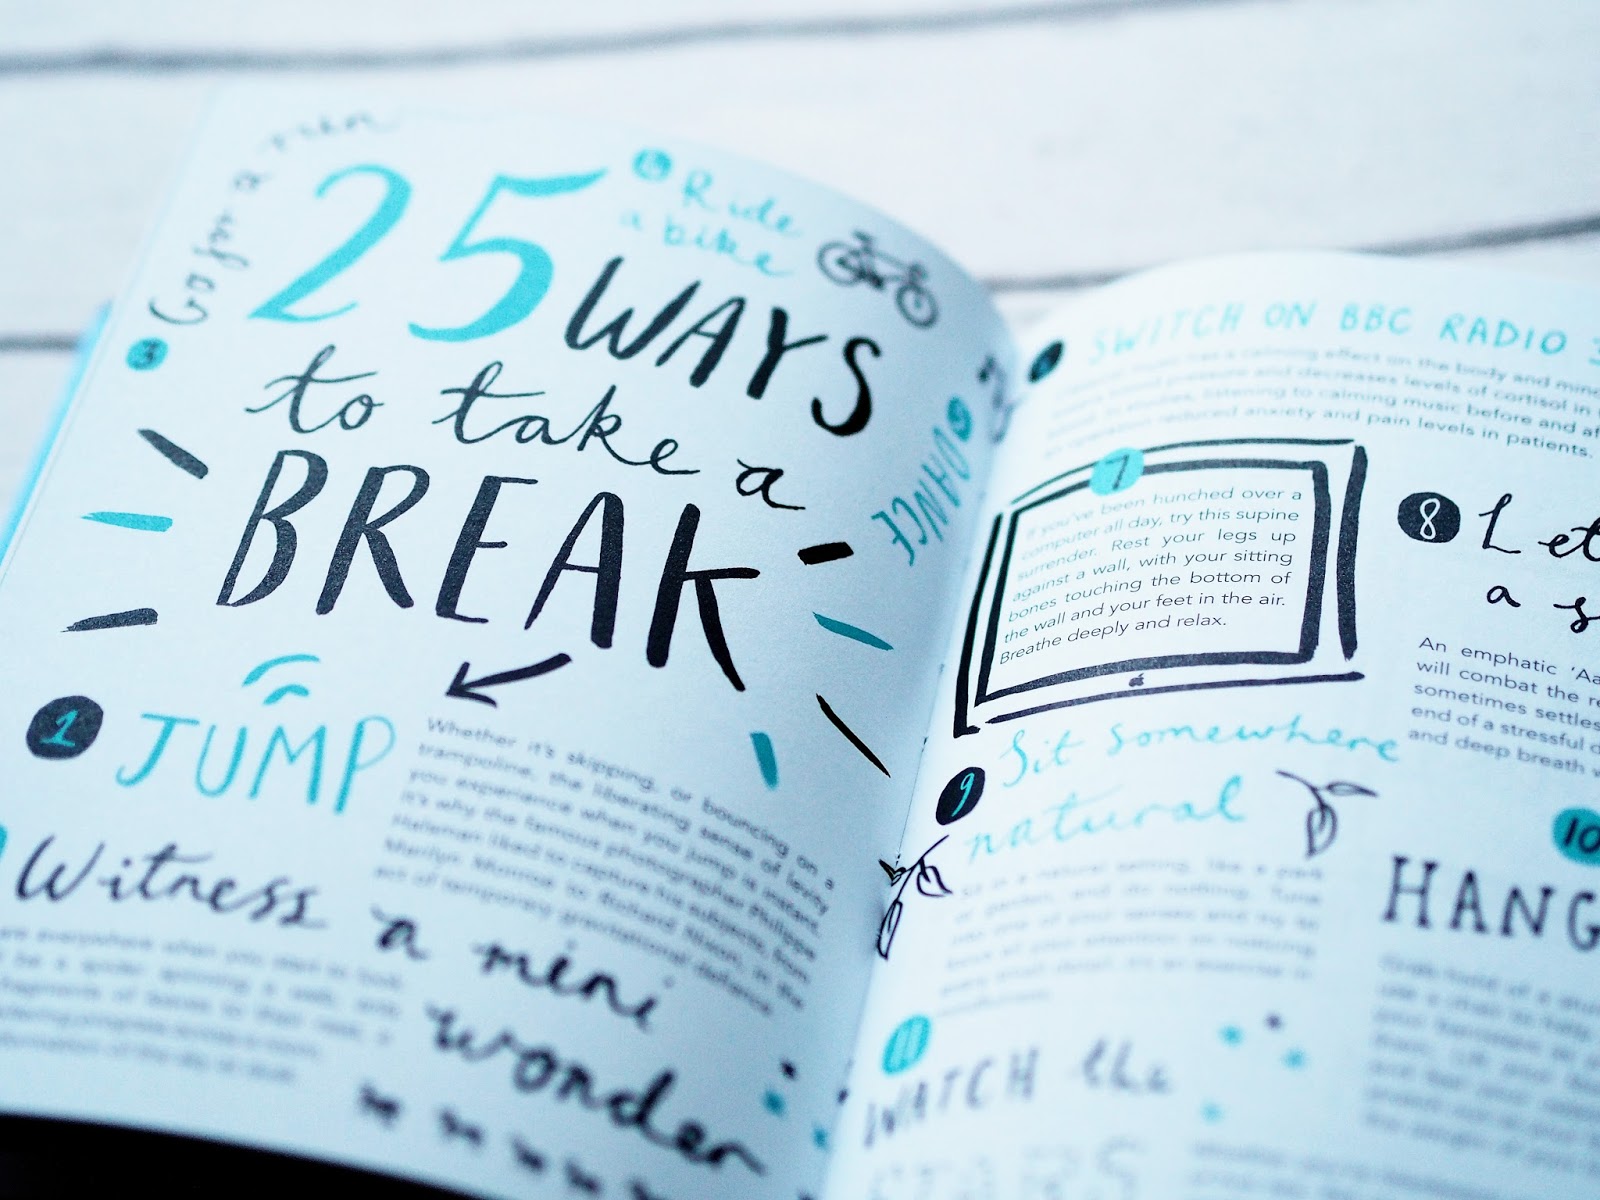 25
WAYS
to take a
BREAK
1
JUMP
Whether it's skipping, or bouncing on a
trampoline, the liberating sense of levity
you experience when you jump is instant.
It's why the famous photographer Philippe
Halsman liked to capture his subjects, from
Marilyn Monroe to Richard Nixon, in the
act of temporary gravitational defiance
Witness a mini
wonder
are everywhere when you want to look.
be a spider spinning a web,
fragments of leaves to their nest,
3
Go for a run
4
Ride
a bike
5
DANCE
6
SWITCH ON BBC RADIO 3
has a calming effect on the body and mind
pressure and decreases levels of cortisol in
listening to calming music before and af
reduced anxiety and pain levels in patients.
7
If you've been hunched over a
computer all day, try this supine
surrender. Rest your legs up
against a wall, with your sitting
bones touching the bottom of
the wall and your feet in the air.
Breathe deeply and relax.
8
Let
a s
An emphatic 'Aa
will combat the re
sometimes settles
end of a stressful d
and deep breath w
9
Sit somewhere
natural
Sit in a natural setting, like a park
or garden, and do nothing. Tune
into one of your senses and try to
focus all your attention on noticing
every small detail. It's an exercise in
mindfulness.
10
HANG
11
WATCH the
STARS